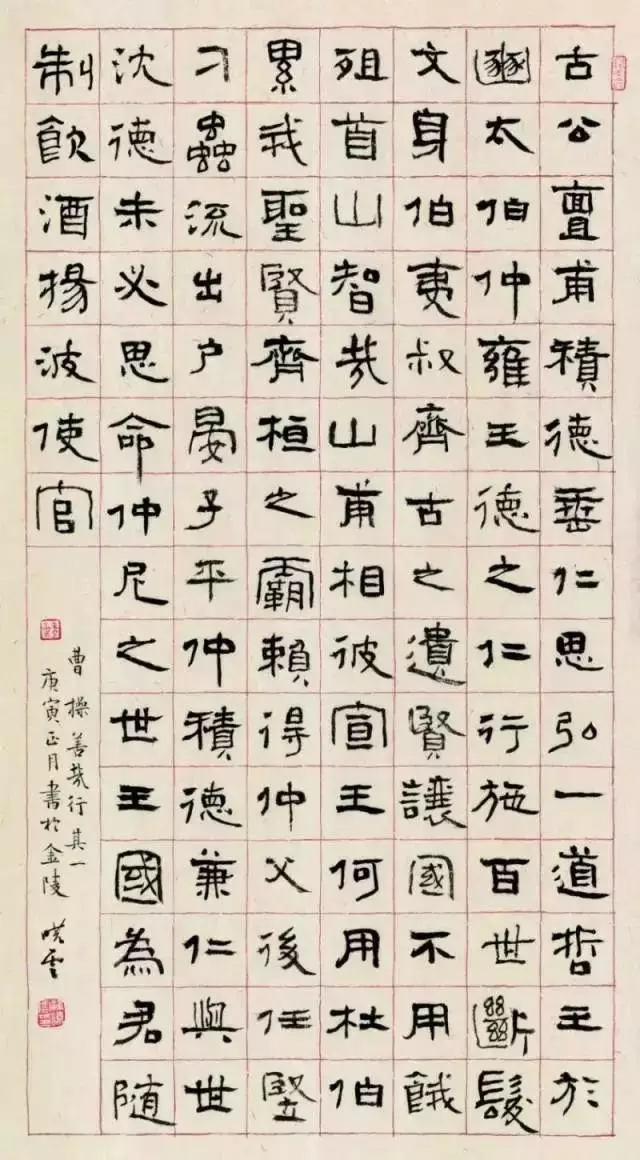 古公亶甫積德垂仁思弘一道哲王於
豳太伯仲雍王德之仁行施百世斷髮
文身伯夷叔齊古之遺賢讓國不用餓
殂首山智哉山甫相彼宣王何用杜伯
累我聖賢齊桓之霸賴得仲父後任豎
刁蟲流出戶晏子平仲積德兼仁與世
沈德未必思命仲尼之世王國為君隨
制飲酒揚波使官
曹操善哉行其一
庚寅正月書於金陵